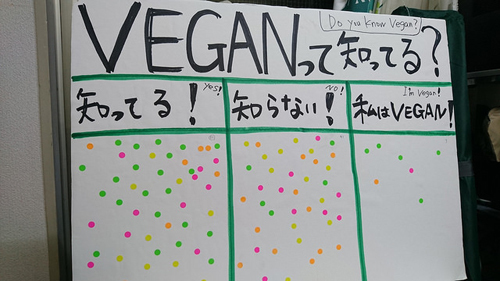 Do you know Vegan?
VEGANって知ってる?
Yes!
知ってる!
NO!
知らない!
I'm vegan!
私はVEGAN!